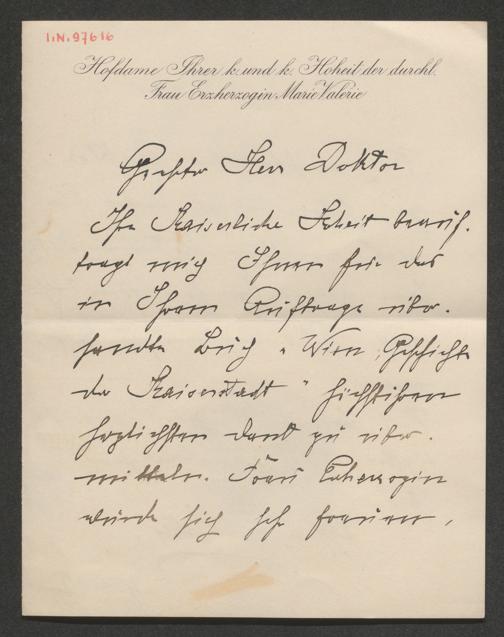 I.N. 97616
Hofdame Ihrer k. und k. Hoheit der durchl.
Frau Erzherzogin Marie Valerie
Geehrter Herr Doktor
Ihre Kaiserliche Hoheit beauf-
tragt mich Ihnen für das
in Ihrem Auftrage über-
sandte Buch „Wien, Geschichte
der Kaiserstadt" höchstihren
herzlichsten Dank zu über-
mitteln. Frau Erzherzogin
würde sich sehr freuen,